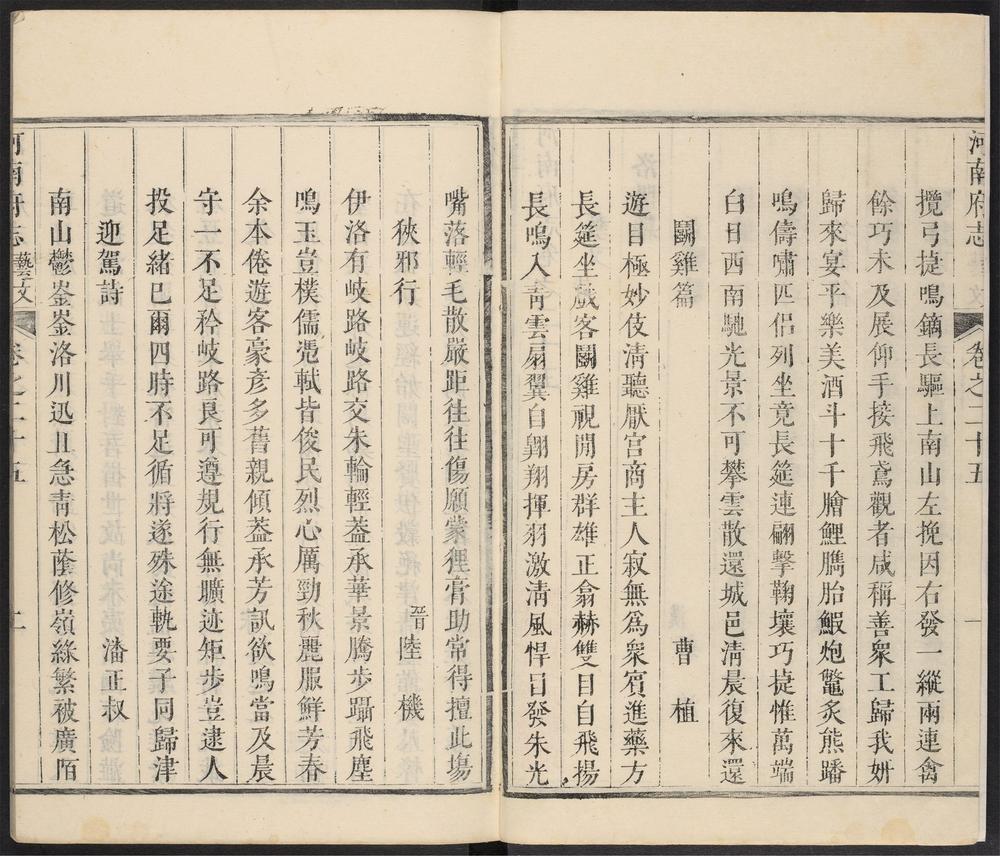 河南府志
卷之二十五
一
攬弓捷鳴鏑長驅上南山左挽因右發一縱兩連禽
餘巧未及展仰手接飛鳶觀者咸稱善衆工歸我妍
歸來宴平樂美酒斗十千膾鯉臇胎鰕炮鼈炙熊蹯
鳴儔嘯匹侶列坐竟長筵連翩擊鞠壤巧捷惟萬端
白日西南馳光景不可攀雲散還城邑清晨復來還
鬭雞篇 曹植
遊目極妙伎清聽厭宮商主人寂無爲衆賓進樂方
長筵坐戲客鬭雞覗閒房群雄正翕赫雙目自飛揚
長鳴入靑雲扇翼自翺翔揮羽激淸風悍目發朱光
嘴落輕毛散嚴距往往傷願蒙狸膏助常得擅此場
狹邪行 晉陸機
伊洛有岐路岐路交朱輪輕葢承華景騰步躡飛塵
鳴玉豈樸儒憑軾皆俊民烈心厲勁秋麗服鮮芳春
余本倦遊客豪彥多舊親傾葢承芳訊欲鳴當及晨
守一不足矜岐路良可遵規行無曠迹矩步豈逮人
投足緒已爾四時不足循將遂殊途軌要子同歸津
迎駕詩 潘正叔
南山鬱岑崟洛川迅且急靑松蔭修嶺綠繁被廣陌
河南府志
藝文
卷之二十五
二